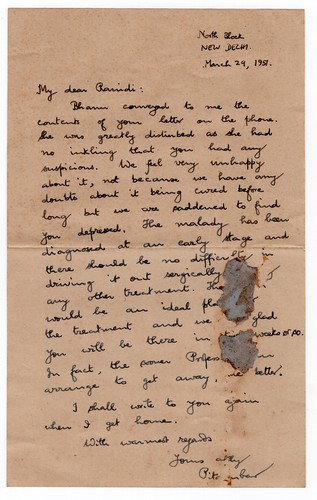 North Block
NEW DELHI.
March 29, 1951.
My dear Ranidi:
Bhanu conveyed to me the
contents of your letter on the phone.
She was greatly disturbed as she had
no inkling that you had any
suspicions. We feel very unhappy
about it, not because we have any
doubts about it being cured before
long but we are saddened to find
you depressed. The malady has been
diagnosed at an early stage and
there should be no difficulty in
driving it out surgically
any other treatment. The
would be an ideal
the treatment and we glad
you will be there in weeks or so.
In fact, the sooner
arrange to get away, better.
I shall write to you again
when I get home.
With warmest regards
Yours